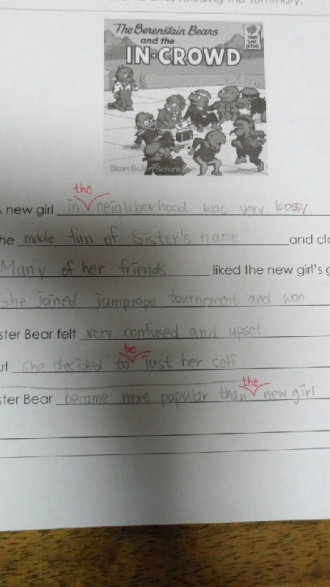 after reading the summary.
The Berenstain Bears
and the
IN-CROWD
the
new girl in neighborhood was very bossy
he made fun of Sister's name and clo
Many of her friends liked the new girl's g
she joined jumprope tournement and won
ster Bear felt very confused and upset
be
ut she decided to just her self
the
ster Bear became more popular than new girl